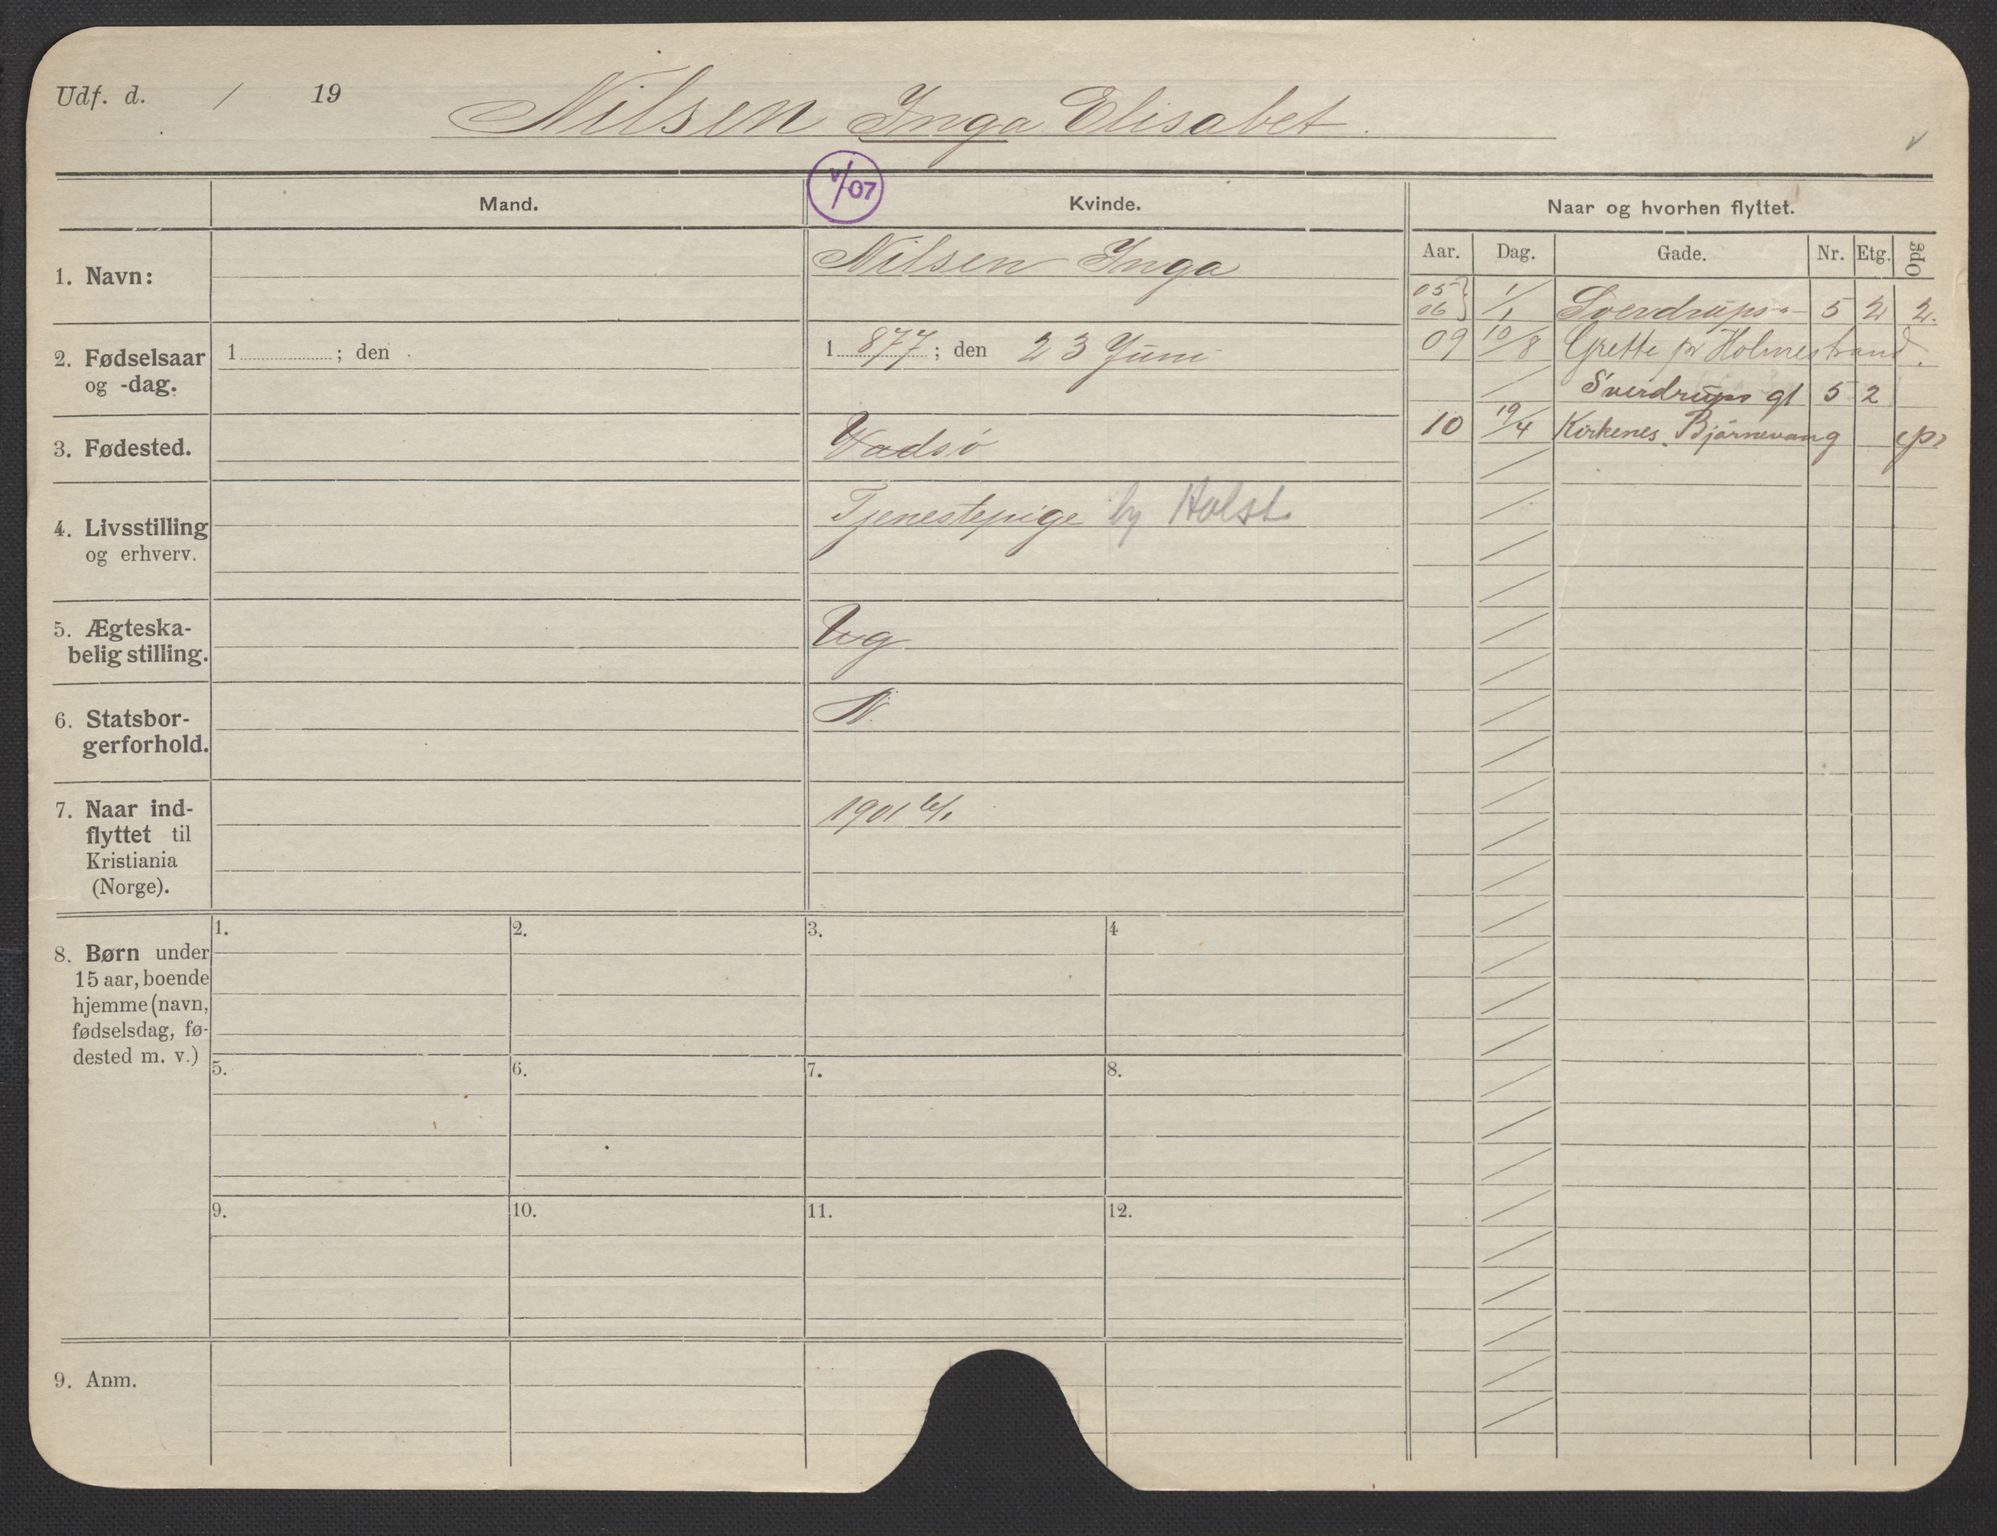 Udf. d. / 19
Nilsen Inga Elisabet.
Mand.
V/07
Kvinde.
Naar og hvorhen flyttet.
Aar. Dag. Gade. Nr. Etg. Opg
1. Navn:
Nilsen Inga
05 } 1/1 Sverdrups- 5 2 2.
06 }
2. Fødselsaar
og -dag.
1 ; den
1 877 ; den 23 Juni
09 10/8 Grette pr Holmestrand.
/ Sverdrups gt 5 2
10 19/4 Kirkenes. Bjørnevang
3. Fødested.
Vadsø
4. Livsstilling
og erhverv.
Tjenestepige hy Holst.
5. Ægteska-
belig stilling.
Ug
6. Statsbor-
gerforhold.
N.
7. Naar ind-
flyttet til
Kristiania
(Norge).
1901
8. Børn under
15 aar, boende
hjemme (navn,
fødselsdag, fø-
dested m. v.)
1. 2. 3. 4
5. 6. 7. 8.
9. 10. 11. 12.
9. Anm.